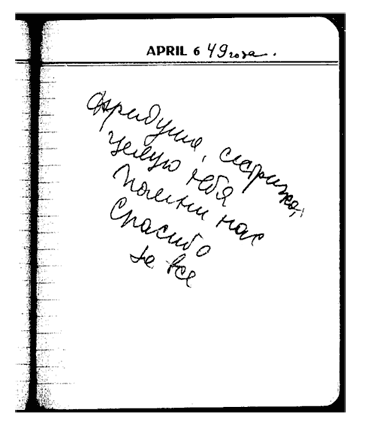 APRIL 6 49 года.
Фридуша, старуха,
Целую тебя
Помни нас
Спасибо
за все